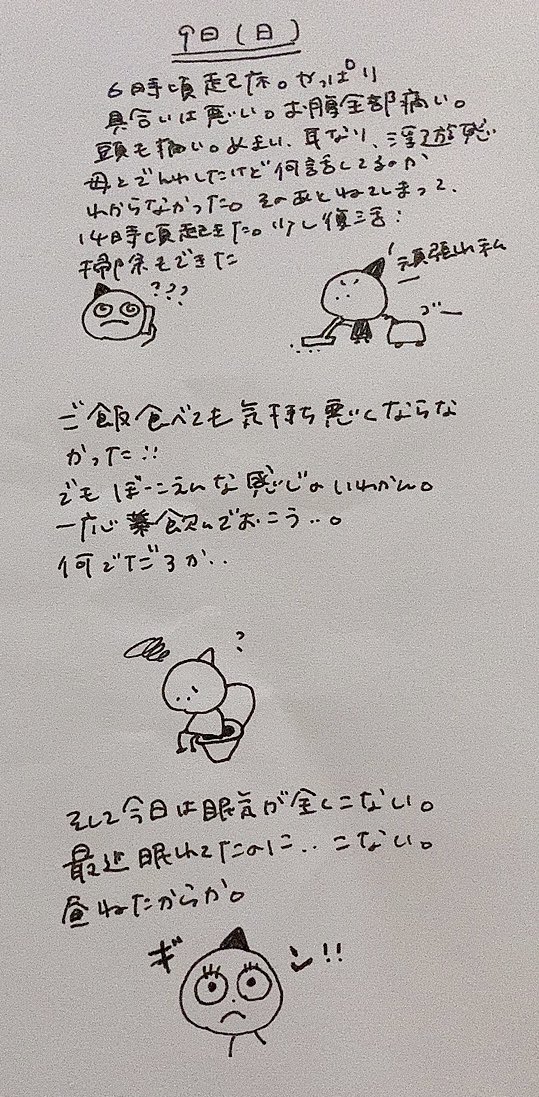 9日(日)
6時頃起床。やっぱり
具合いは悪い。お腹全部痛い。
頭も痛い。めまい、耳なり、浮遊感
母とでんわしたけど何話してるのか
わからなかった。そのあとねてしまって、
14時頃起きた。少し復活:
掃除もできた
???
頑張れ私
ゴー
ご飯食べても気持ち悪くならな
かった!!
でも ぼーこえんな感じの いわかん。
一応 薬飲んでおこう..。
何でだろか..
?
そして今日は眠気が全くこない。
最近眠れてたのに..こない。
昼ねたからか。
ギ ン!!